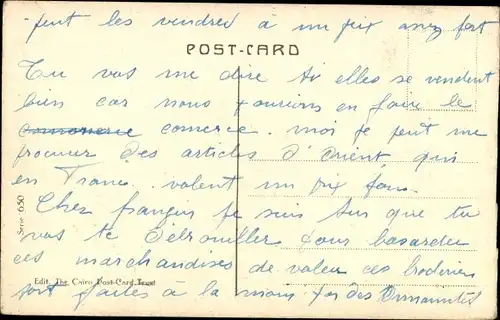 peut les vendred à un prix assez fort
POST-CARD
Tu vas me dire si elles se vendent
bien car nous pourions en faire le
comerce. moi je peut me
procurer des articles d'orient, qui
en France valent un prix fou.
Cher françois je suis sur que tu
vas te débrouiller pour basarder
ces marchandises de valeur ces broderies
sont faites à la main par des
Serie 650
Edit. The Cairo Post-Card Trust